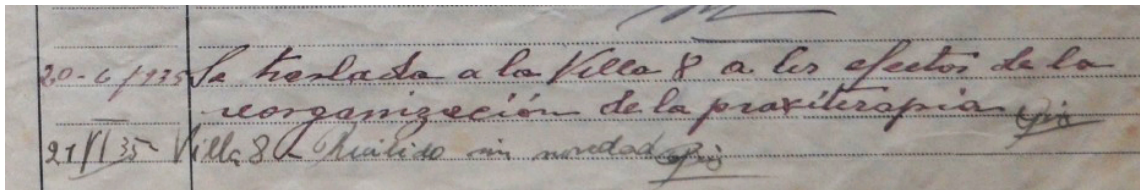 20-6/935 Se traslada a la Villa 8 a los efectos de la
reorganización de la praxiterapia
21/VI/35- Villa 8 - Recibido sin novedad